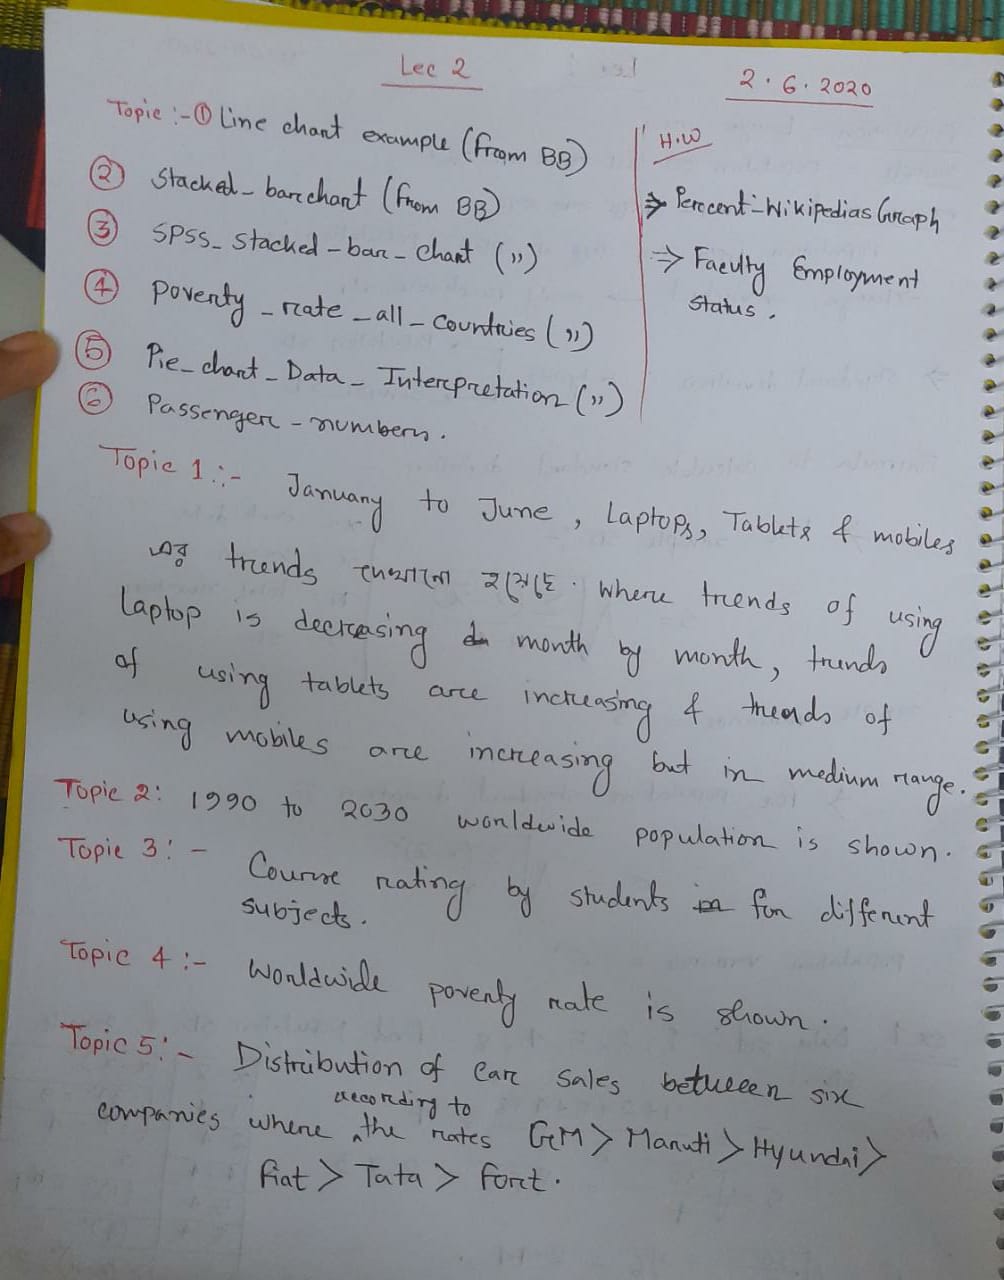 Lec 2
2.6.2020
Topic :- ① Line chart example (from BB)
② Stacked_barchart (from BB)
③ SPSS_stacked-bar-chart (")
④ Poverty_rate_all_countries (")
⑤ Pie_chart_Data_Interpretation (")
⑥ Passenger-numbers.
H.W
⇒ Percent-Wikipedias Graph
⇒ Faculty Employment
Status.
Topic 1:- January to June, Laptops, Tablets & mobiles
এর trends দেখানো হয়েছে. where trends of using
laptop is decreasing month by month, trends
of using tablets are increasing & treads of
using mobiles are increasing but in medium range.
Topic 2: 1990 to 2030 worldwide population is shown.
Topic 3: - Course rating by students for different
subjects.
Topic 4:- Worldwide poverty rate is shown.
Topic 5:- Distribution of car sales between six
companies where according to the rates GM > Maruti > Hyundai >
fiat > Tata > fort.